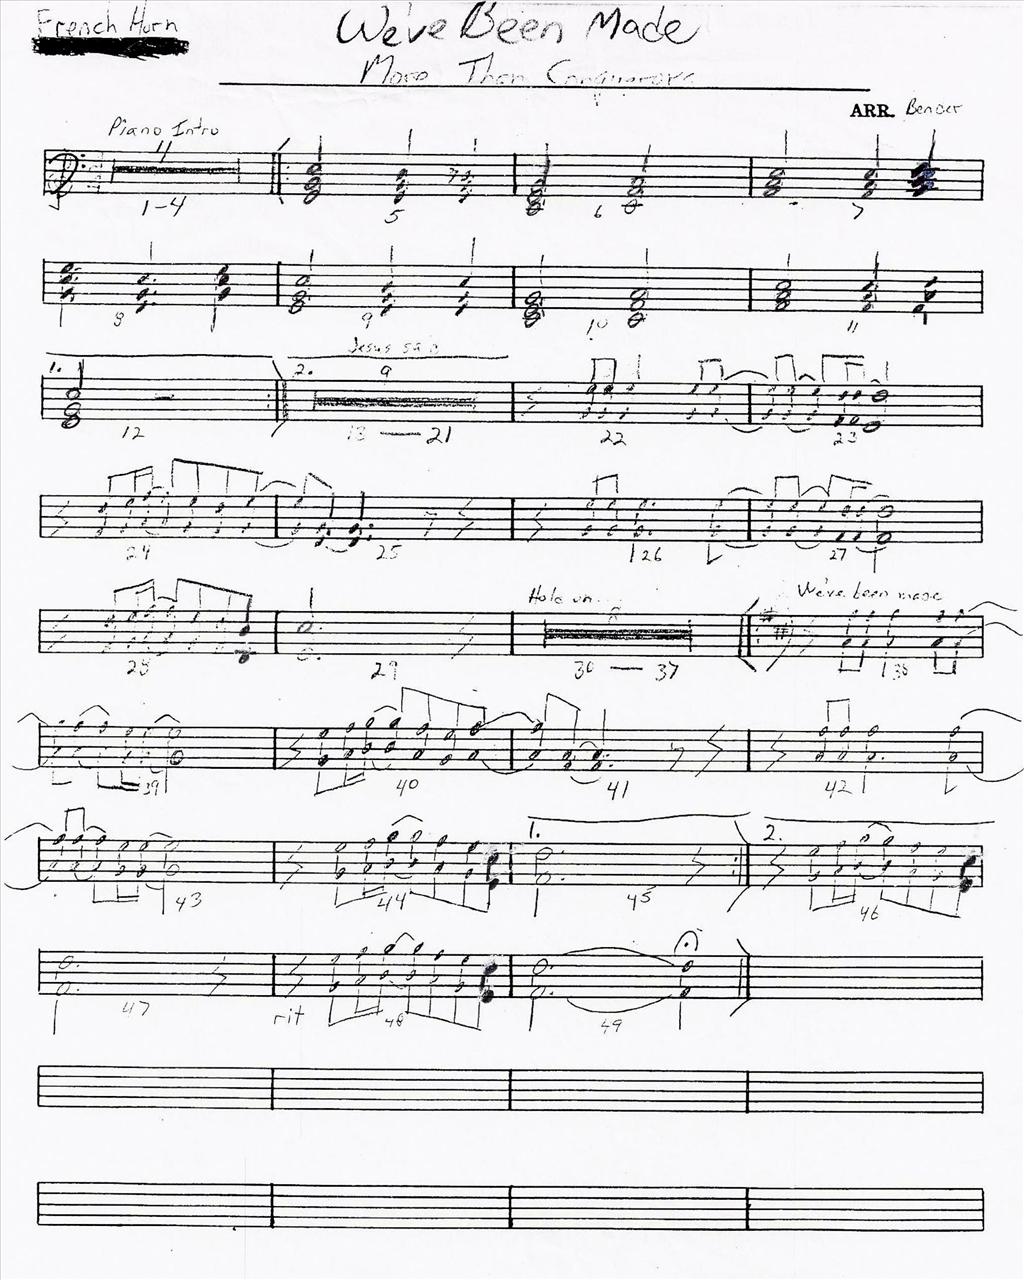 French Horn
We've Been Made
More Than Conquerors
ARR. Bender
Piano Intro
4
1-4 5 6 7
8 9 10 11
Jesus said
1. 2. 9
12 13 — 21 22 23
24 25 26 27
Hold on... We've been made
8
28 29 30 — 37 38
39 40 41 42
1. 2.
43 44 45 46
47 rit 48 49